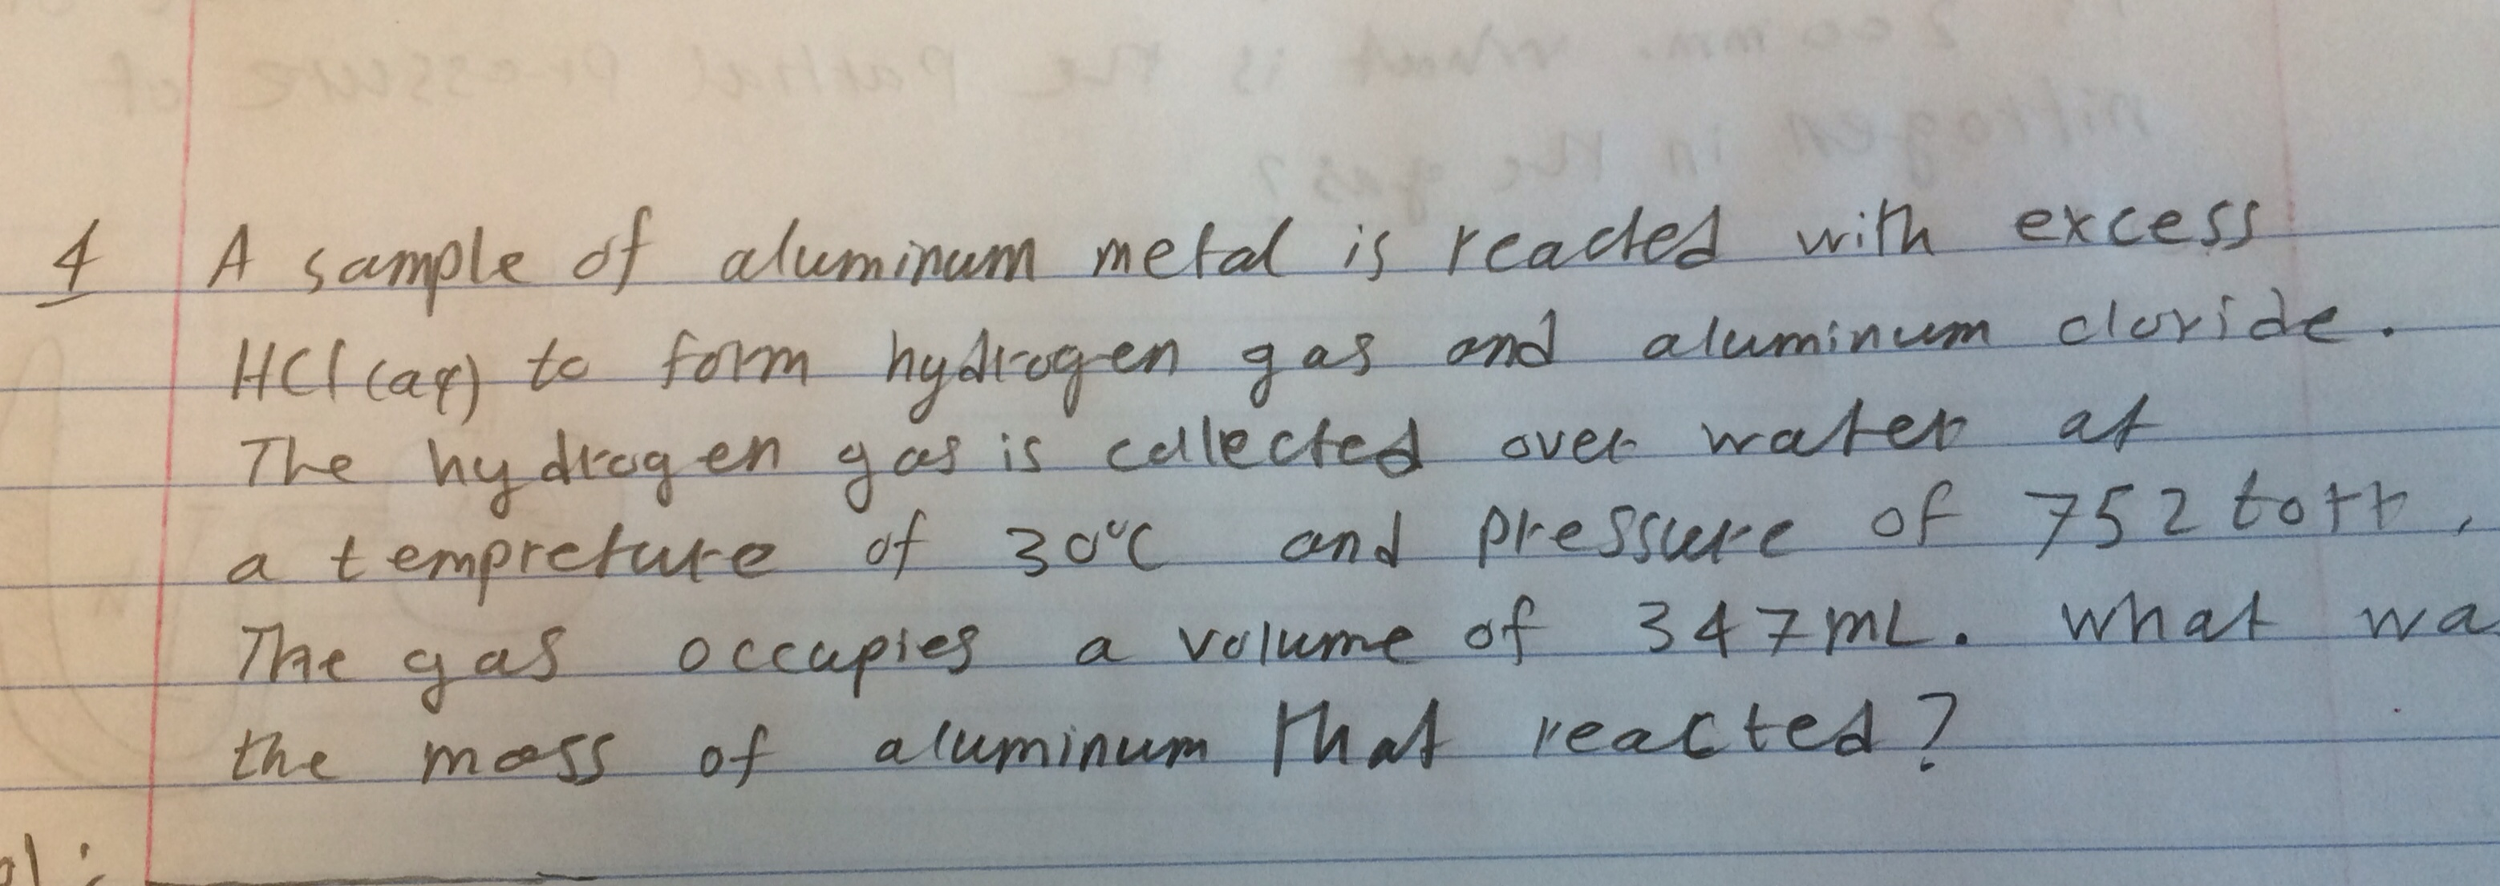 4 A sample of aluminum metal is reacted with excess
HCl(aq) to form hydrogen gas and aluminum cloride.
The hydrogen gas is collected over water at
a tempreture of 30°C and pressure of 752 torr,
The gas occupies a volume of 347mL. what wa
the mass of aluminum that reacted?